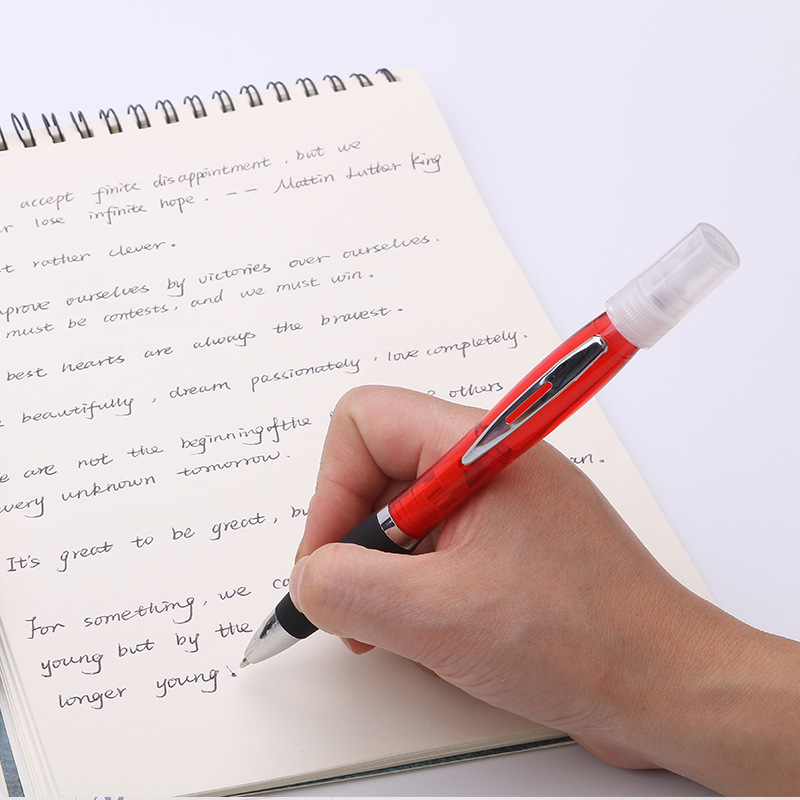 accept finite disappointment , but we
r lose infinite hope . -- Mattin Luther King
t rather clever .
mprove ourselves by victories over ourselves .
must be contests, and we must win .
best hearts are always the bravest .
beautifully , dream passionately , love completely .
e are not the beginning of the others
very unknown tomorrow . an .
It's great to be great , bu
For something, we ca
young but by the
longer young